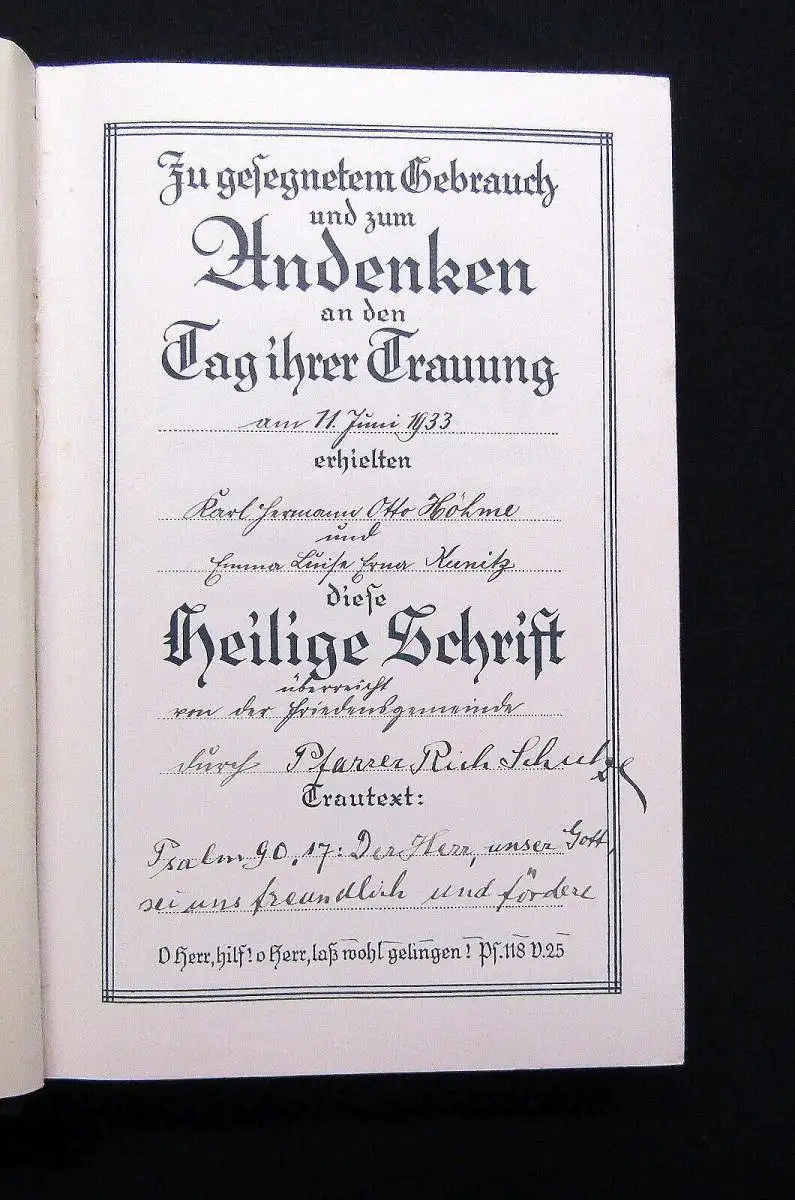 Zu gesegnetem Gebrauch
und zum
Andenken
an den
Tag ihrer Trauung
am 11. Juni 1933
erhielten
Karl Hermann Otto Höhme
und
Emma Luise Erna Kunitz
diese
Heilige Schrift
überreicht
von der Friedensgemeinde
durch Pfarrer Rich Schulze
Trautext:
Psalm 90, 17: Der Herr, unser Gott,
sei uns freundlich und fördere
O Herr, hilf! o Herr, laß wohl gelingen! Ps. 118 V. 25